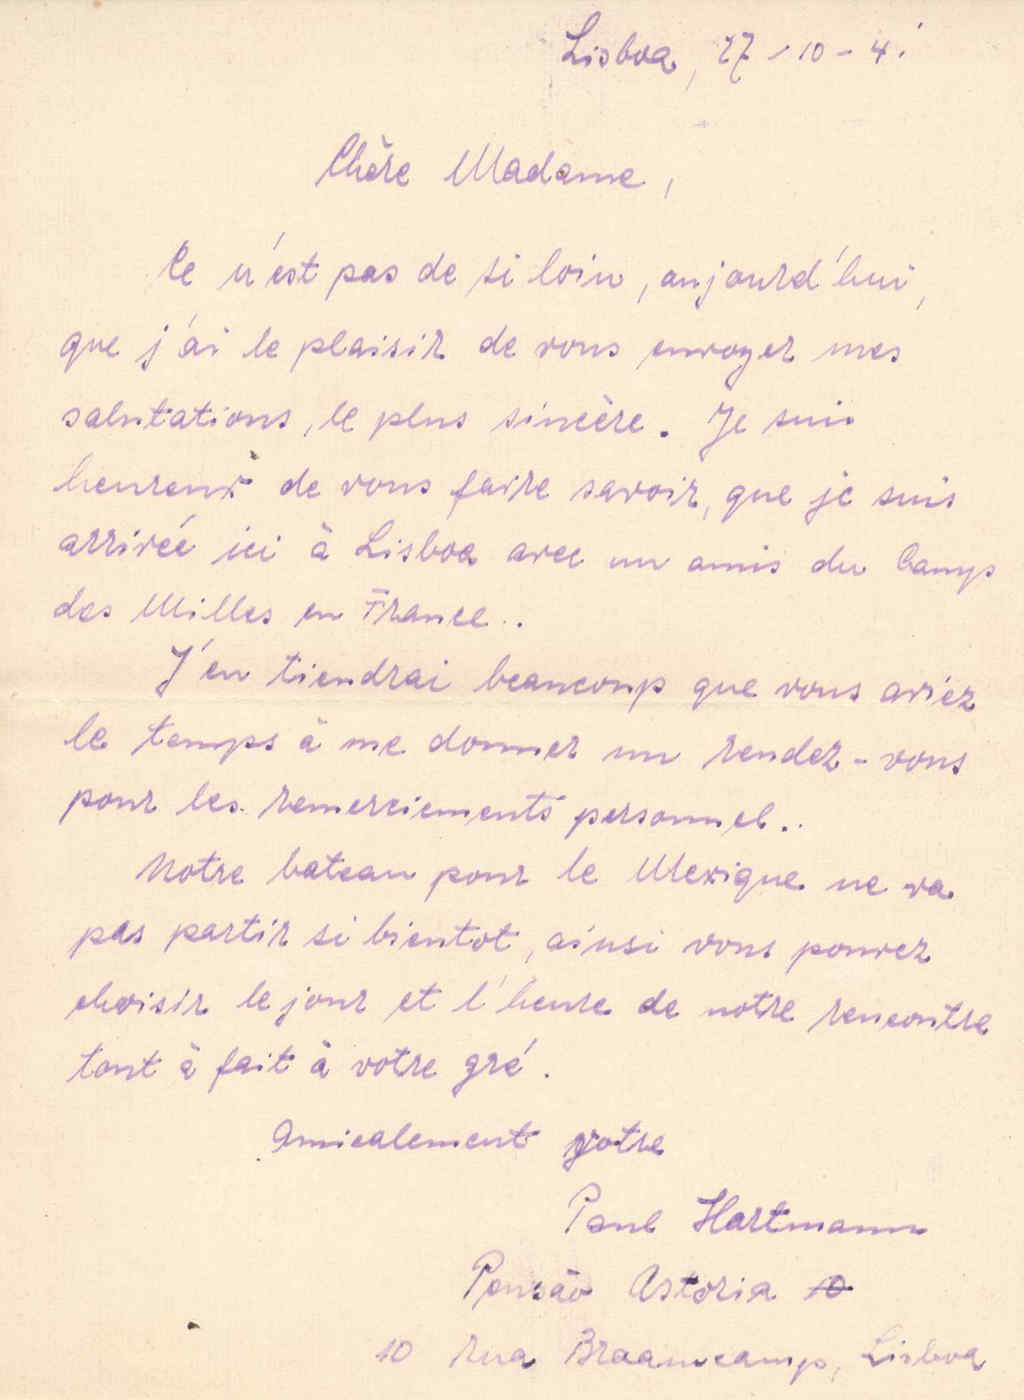 Lisboa, 27-10-41
Chère Madame,
Ce n'est pas de si loin, aujourd'hui,
que j'ai le plaisir de vous envoyer mes
salutations, le plus sincère. Je suis
heureux de vous faire savoir, que je suis
arrivée ici à Lisboa avec un amis du Camps
des Milles en France..
J'en tiendrai beaucoup que vous aviez
le temps à me donner un rendez-vous
pour les remerciements personnel..
Notre bateau pour le Mexique ne va
pas partir si bientot, ainsi vous pouvez
choisir le jour et l'heure de notre rencontre
tout à fait à votre gré.
Amicalement votre
Paul Hartmann
Pensão Astoria
10 rua Braamcamp, Lisboa